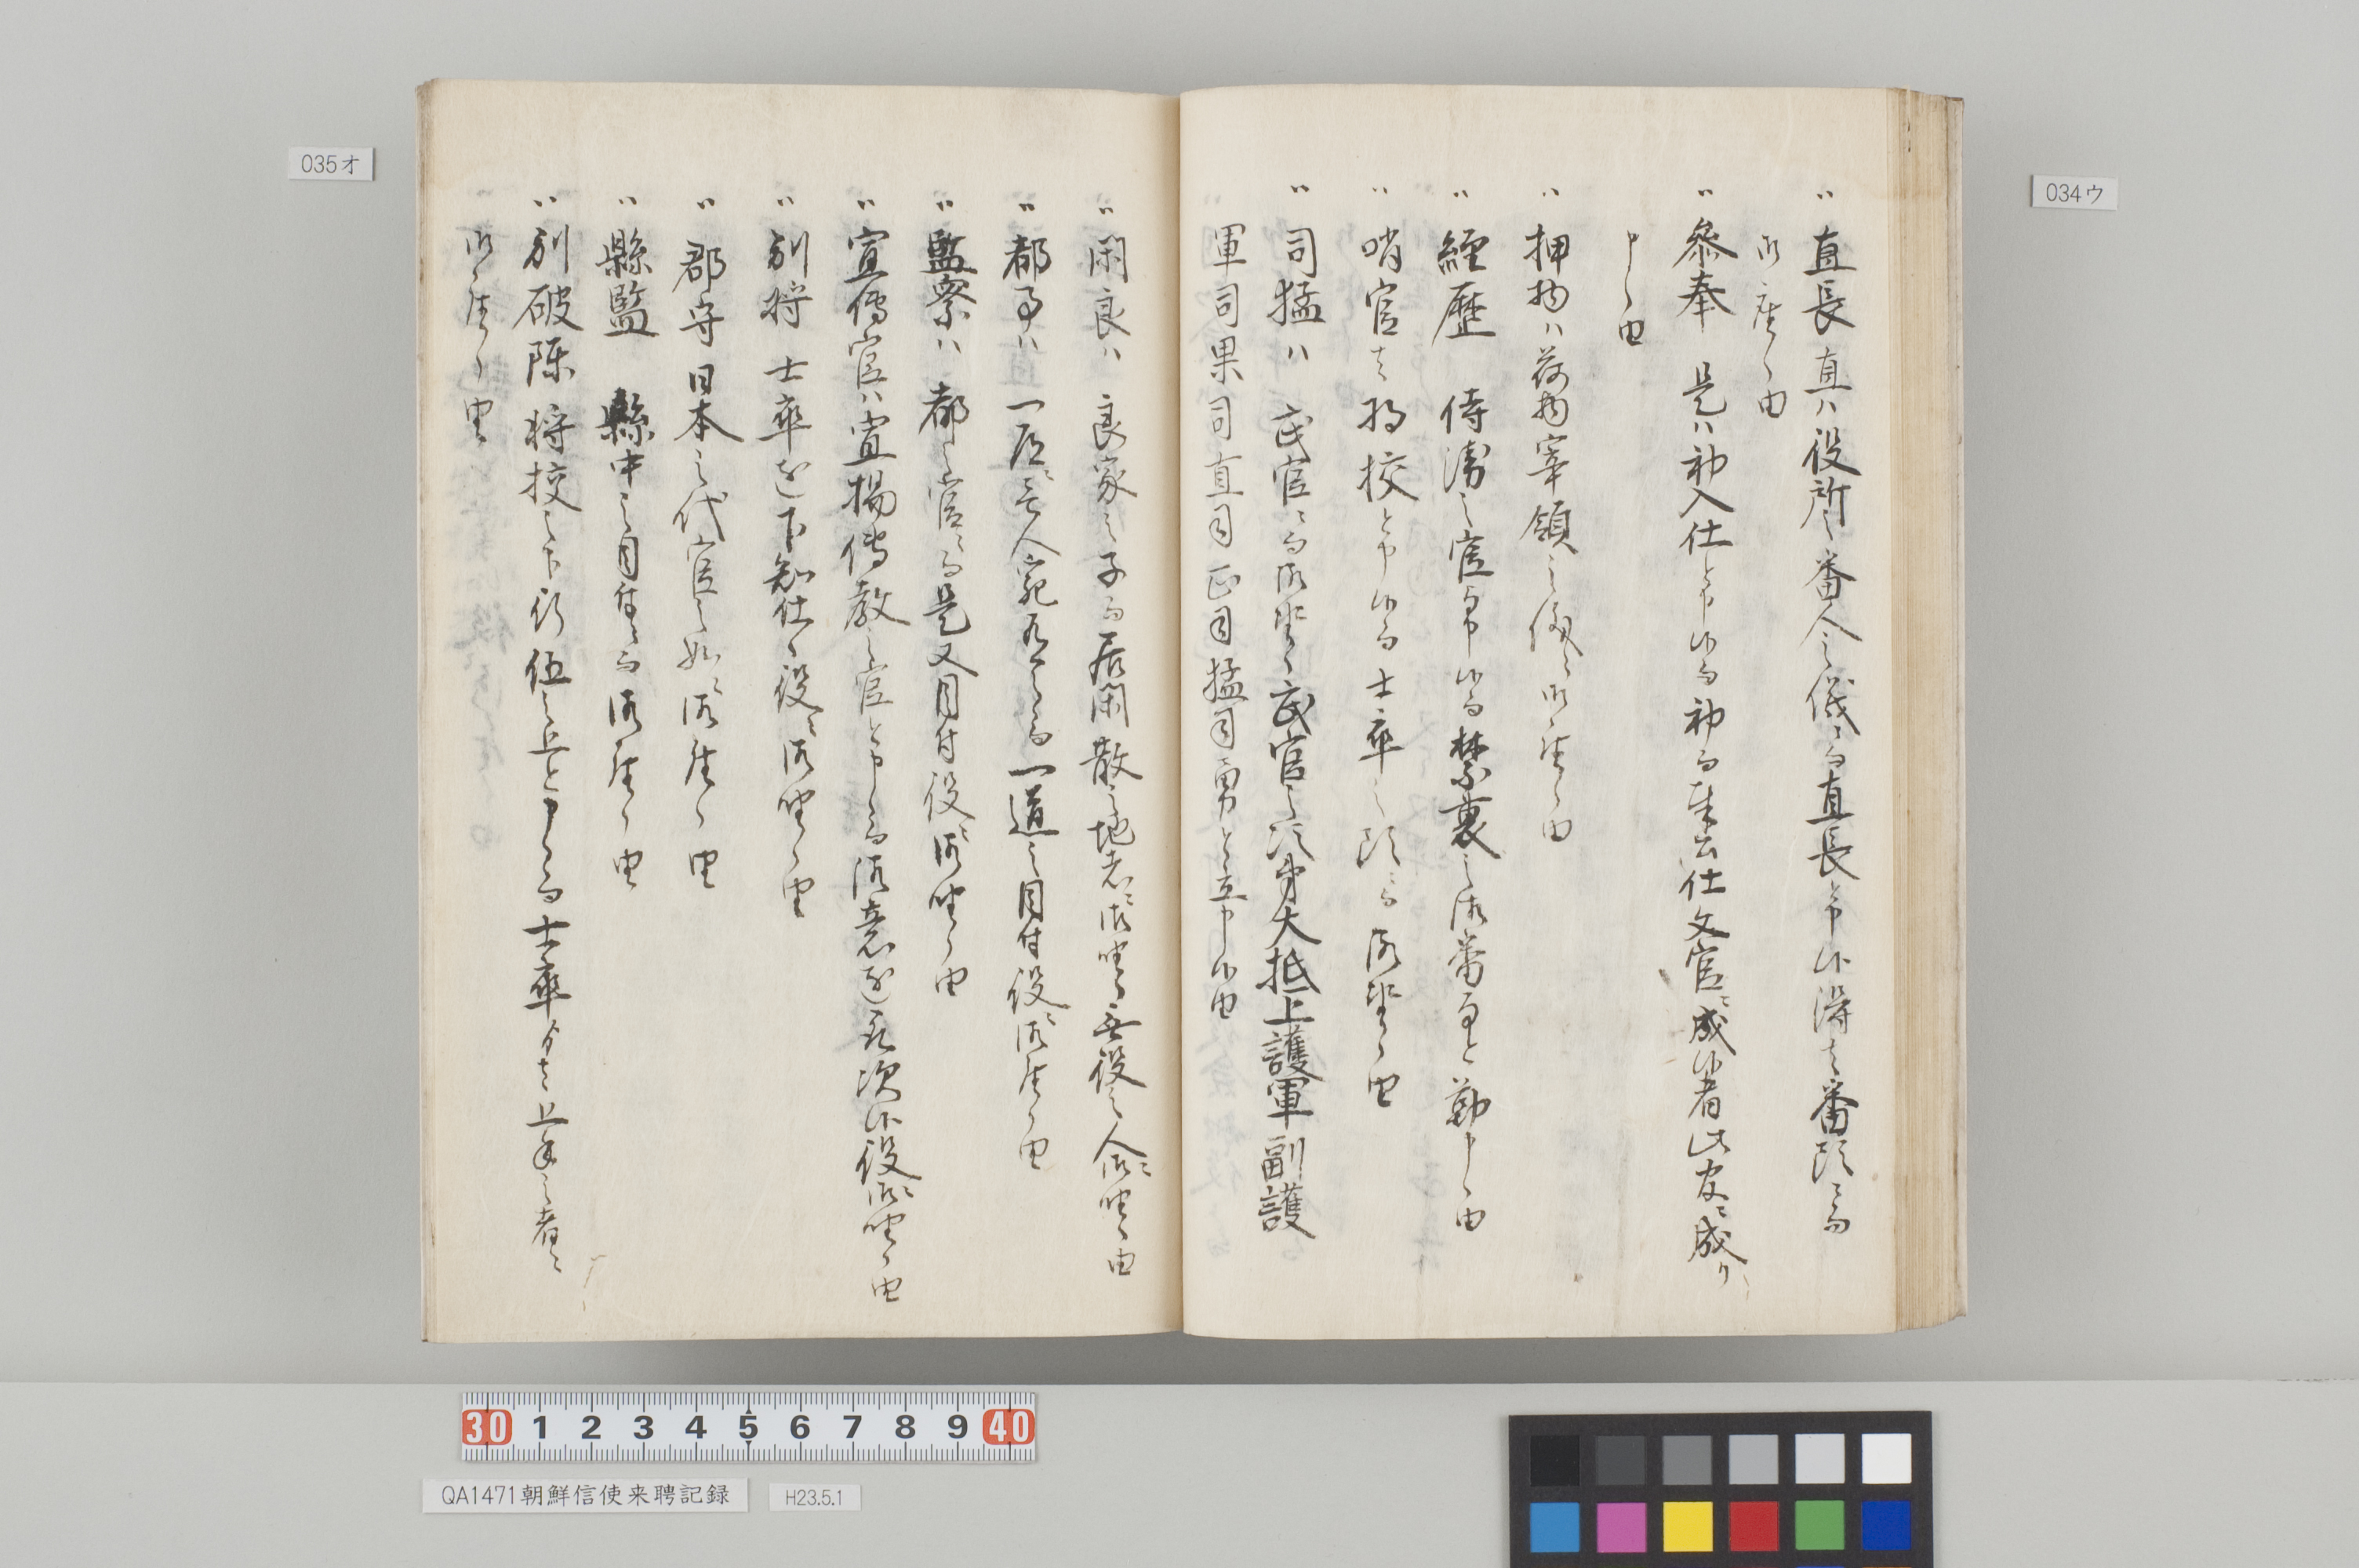 034ウ
〃直長 直ハ役所之番人之儀ニ而直長と申候得は番頭ニ而
御座候由
〃参奉 是ハ初入仕と申候而初而奉公仕文官ニ成候者此官ニ成り
申候由
〃押物ハ荷物宰領之儀ニ御座候由
〃經歴 侍衛之官与申候而禁裏之御番等を勤申候由
〃哨官は将校と申候而士卒之頭ニ而御座候由
〃司猛ハ 武官ニ而御座候武官之次第大抵上護軍副護
軍司果司直司正司猛司勇と立申候由
035オ
〃閑良ハ 良家之子ニ而居閑散之地者ニ御座候無役之人ニ御座候由
〃都事ハ 一道ニ壱人宛有之候而一道之目付役ニ御座候由
〃監察ハ 都之官ニ而是又目付役ニ御座候由
〃宣傳官ハ宣揚傳教之官と申候而御意を取次候役ニ御座候由
〃別将 士卒を下知仕候役ニ御座候由
〃郡守 日本之代官之如ニ御座候由
〃縣監 縣中之目付ニ而御座候由
〃別破陣 将校之下行伍之上と申候而士卒よりは上手之者ニ
御座候由
30 1 2 3 4 5 6 7 8 9 40
QA1471朝鮮信使来聘記録
H23.5.1